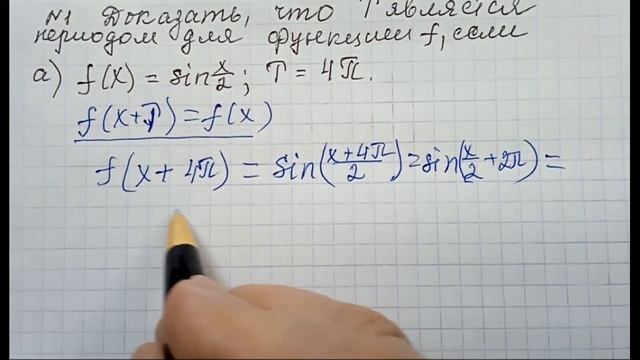 №1 Доказать, что T является
периодом для функции f, если
а) f(x) = sin x/2; T = 4π.
f(x+T) = f(x)
f(x + 4π) = sin((x+4π)/2) = sin(x/2 + 2π) =